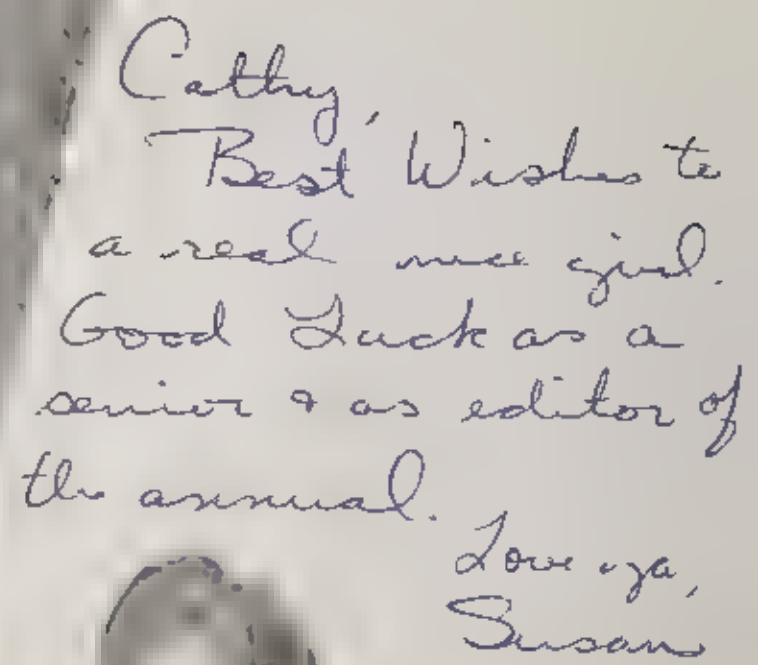 Cathy,
Best Wishes to
a real nice girl.
Good Luck as a
senior & as editor of
the annual.
Love ya,
Susan